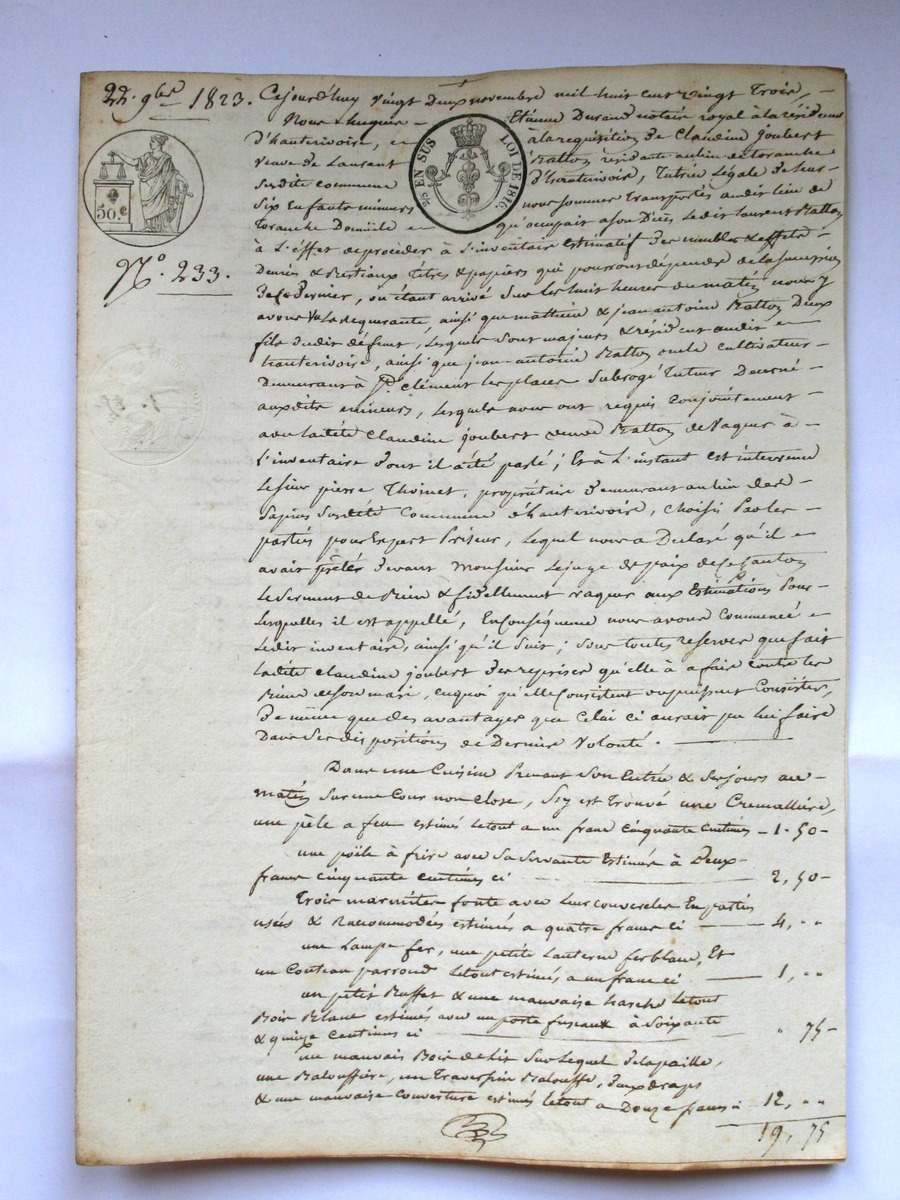 22. 9bre 1823.
50.c
2/5 EN SUS LOI DE 1816.
No. 233.
Cejourd'huy vingt deux novembre mil huit cent vingt trois,
Nous Etienne Durand notaire royal à la résidence
d'hauterivoire, à la requisition de Claudine Joubert
veuve de Laurent Ratton résidante au lieu de toranche
susdite commune d'hauterivoire, tutrice légale de ses
six enfants mineurs nous sommes transportés audit lieu de
toranche Domicile qu'occupait à son Décès ledit Laurent Ratton
à l'effet de proceder à l'inventaire estimatif des meubles & effets
Denrés & Bestiaux titres & papiers qui pourront dépendre de la succession
de ce dernier, où étant arrivé sur les huit heures du matin nous y
avons vu la requerante, ainsi que mathieu & jean antoine Ratton Deux
fils dudit défunt, lesquels sont majeurs & résident audit
hauterivoire, ainsi que jean antoine Ratton oncle cultivateur
Demeurant à St. clément les places subrogé tuteur Decerné
auxdits mineurs, lesquels nous ont requis conjointement
avec ladite Claudine joubert veuve Ratton de vaquer à
l'inventaire dont il a été parlé; Et à l'instant est intervenu
le sieur pierre Thoinet, propriétaire demeurant au lieu des
sapins susdite Commune d'hauterivoire, choisi par les
parties pour Expert Priseur, lequel nous a Declaré qu'il
avait prêter devant Monsieur le juge de paix de ce Canton
le serment de Bien & fidellement vaquer aux Estimations pour
lesquelles il est appellé, En conséquence nous avons commencé
ledit inventaire, ainsi qu'il suit; sous toutes reserves que fait
ladite claudine joubert des reprises qu'elle à a fair contre les
Biens de son mari, en quoi qu'elle consistent ou puissent consister,
de même que des avantages que celui ci aurait pu lui faire
Dans ses dispositions de Dernière Volonté.
Dans une cuisine prenant son entrée & ses jours au
matin sur une Cour non close, s'y est trouvé une Cremallière,
une pèle a feu estimés le tout a un franc cinquante centimes - 1.50 -
une poële à frire avec sa servante estimée à Deux
francs cinquante centimes ci 2,50 -
Trois marmites fonte avec leur couvercles En parties
usées & Raccommodées estimées a quatre francs ci 4, "
une Lampe fer, une petite Lanterne fer blanc, Et
un Couteau parroud le tout estimés a un franc ci 1, "
un petit Buffet & une mauvaise harche le tout
Bois Blanc estimés avec un porte fuseaux à soixante
& quinze centimes ci " 75 -
un mauvais Bois de lit sur lequel de la paille,
une Balouffière, un Traversin Balouffe, deux draps
& une mauvaise couverture estimés le tout a Douze francs ci - 12, "
19, 75